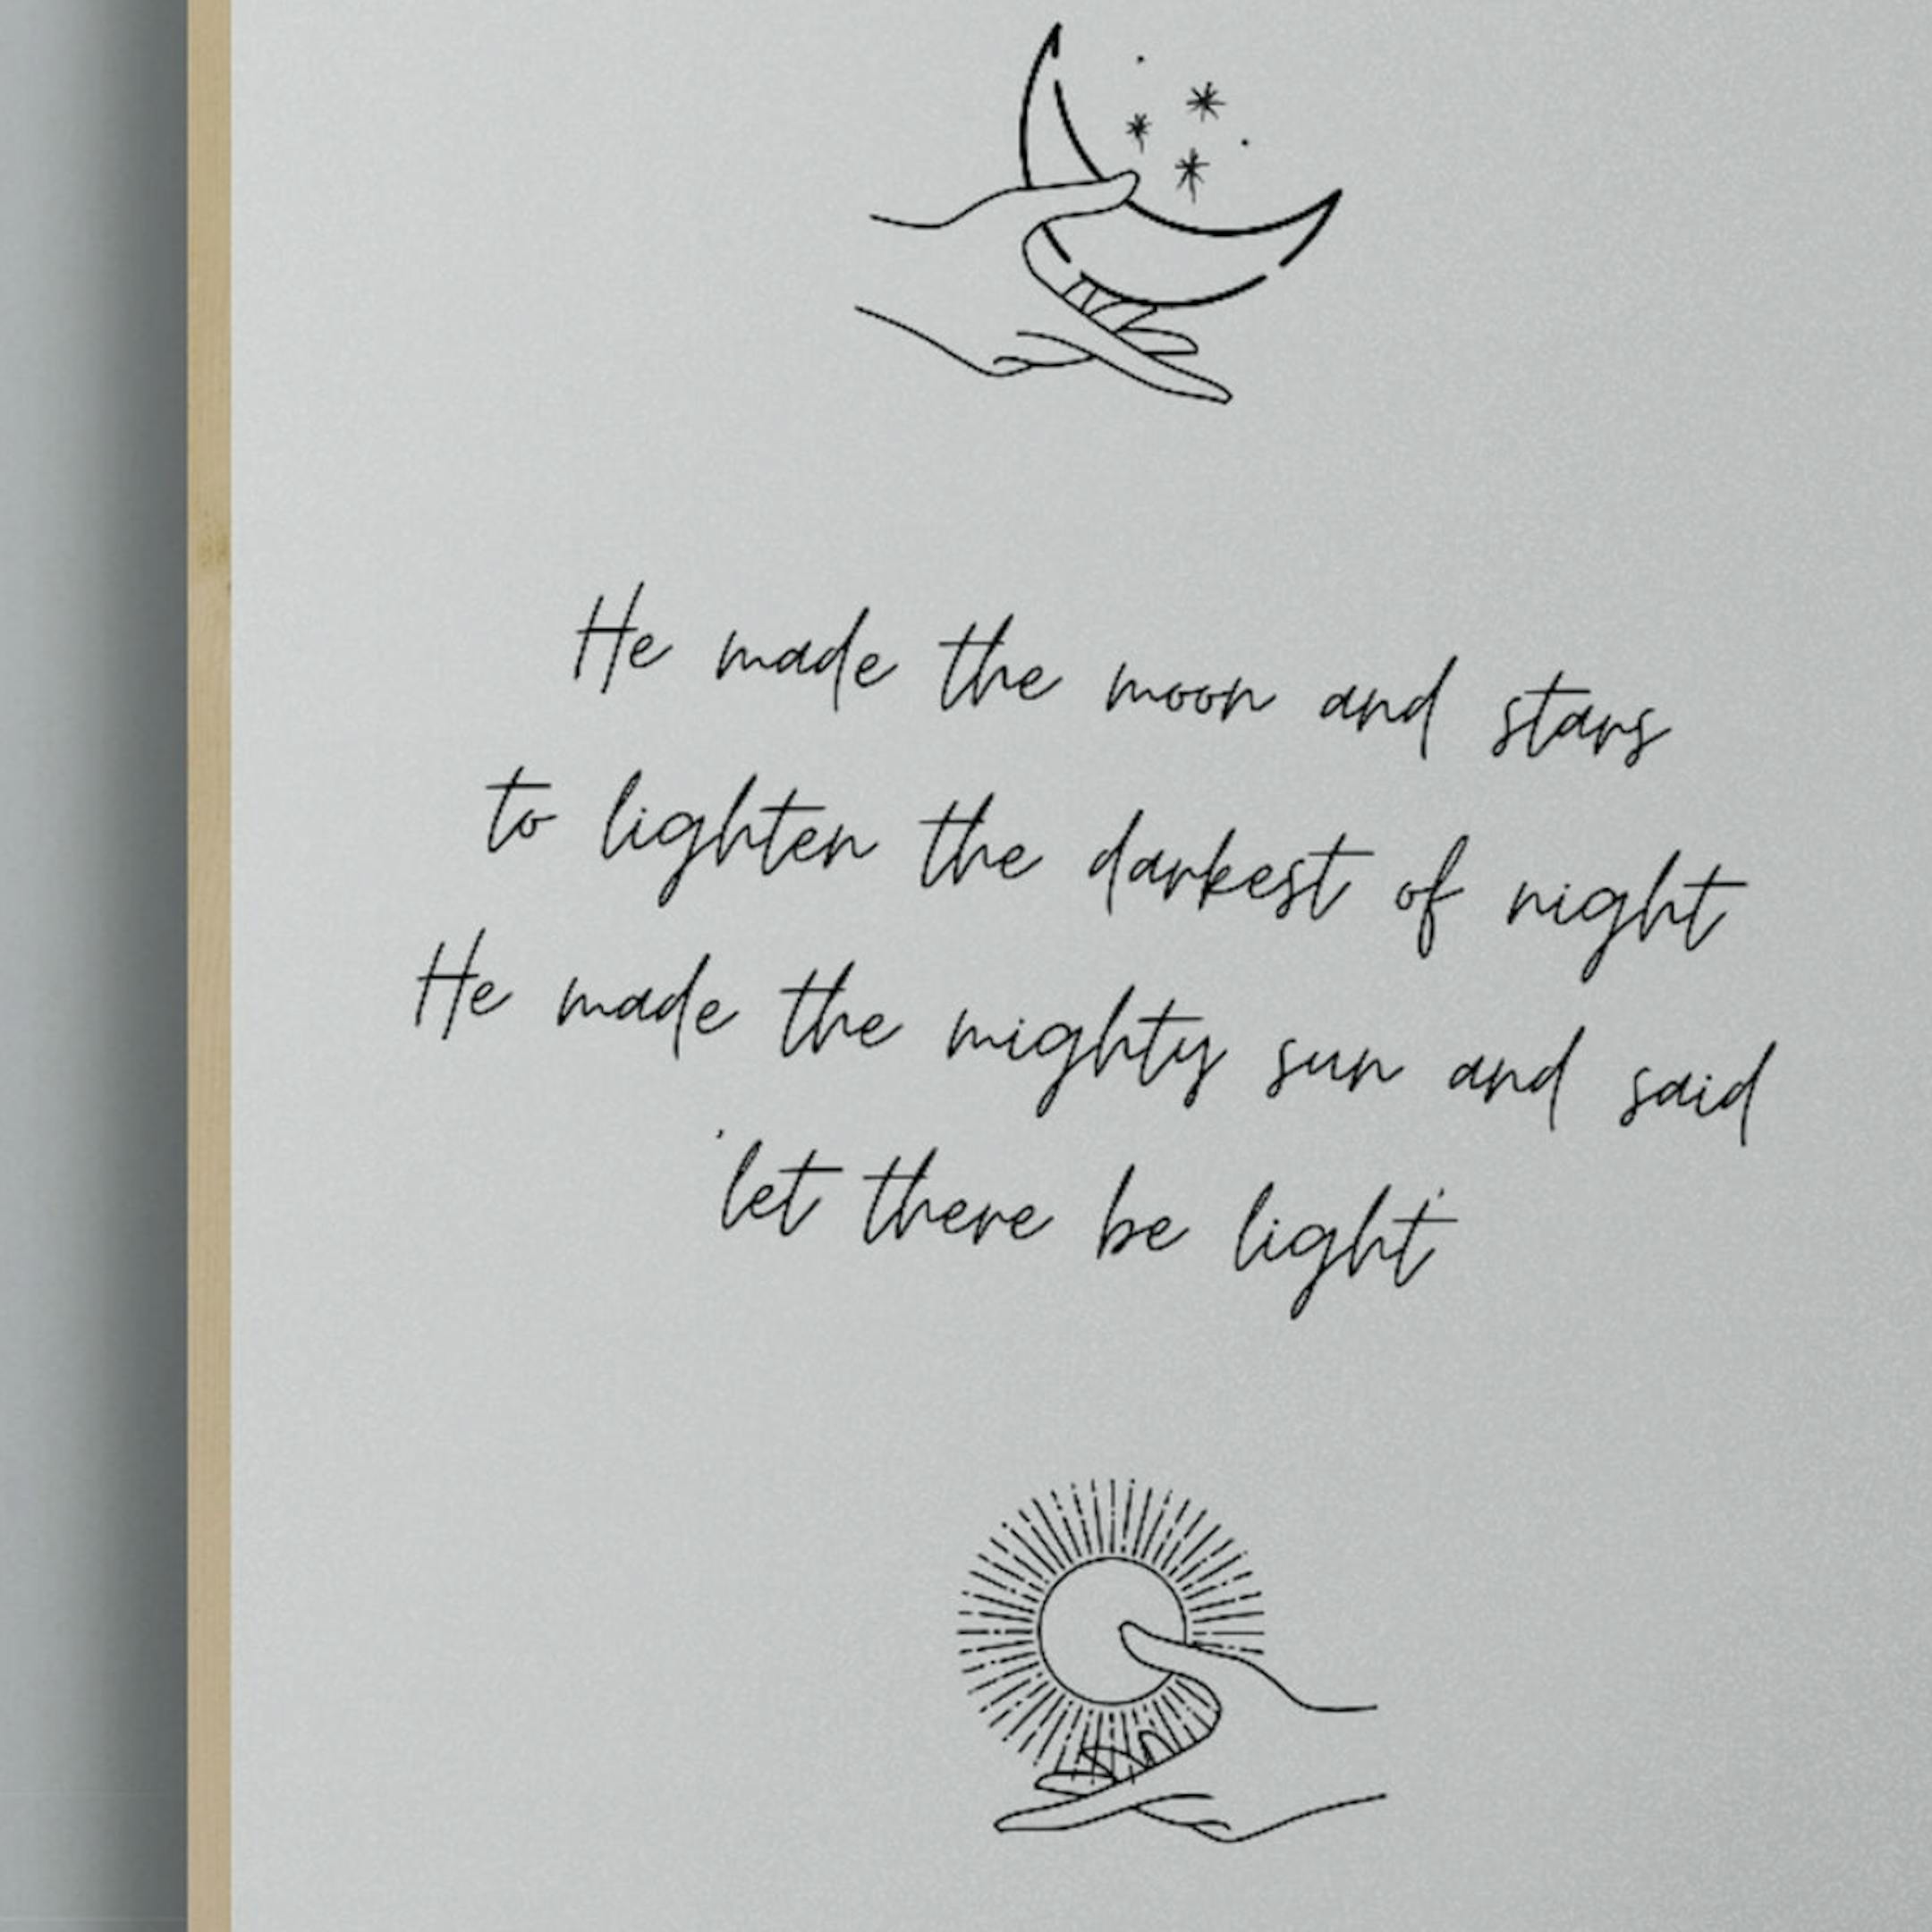 He made the moon and stars
to lighten the darkest of night
He made the mighty sun and said
'let there be light'